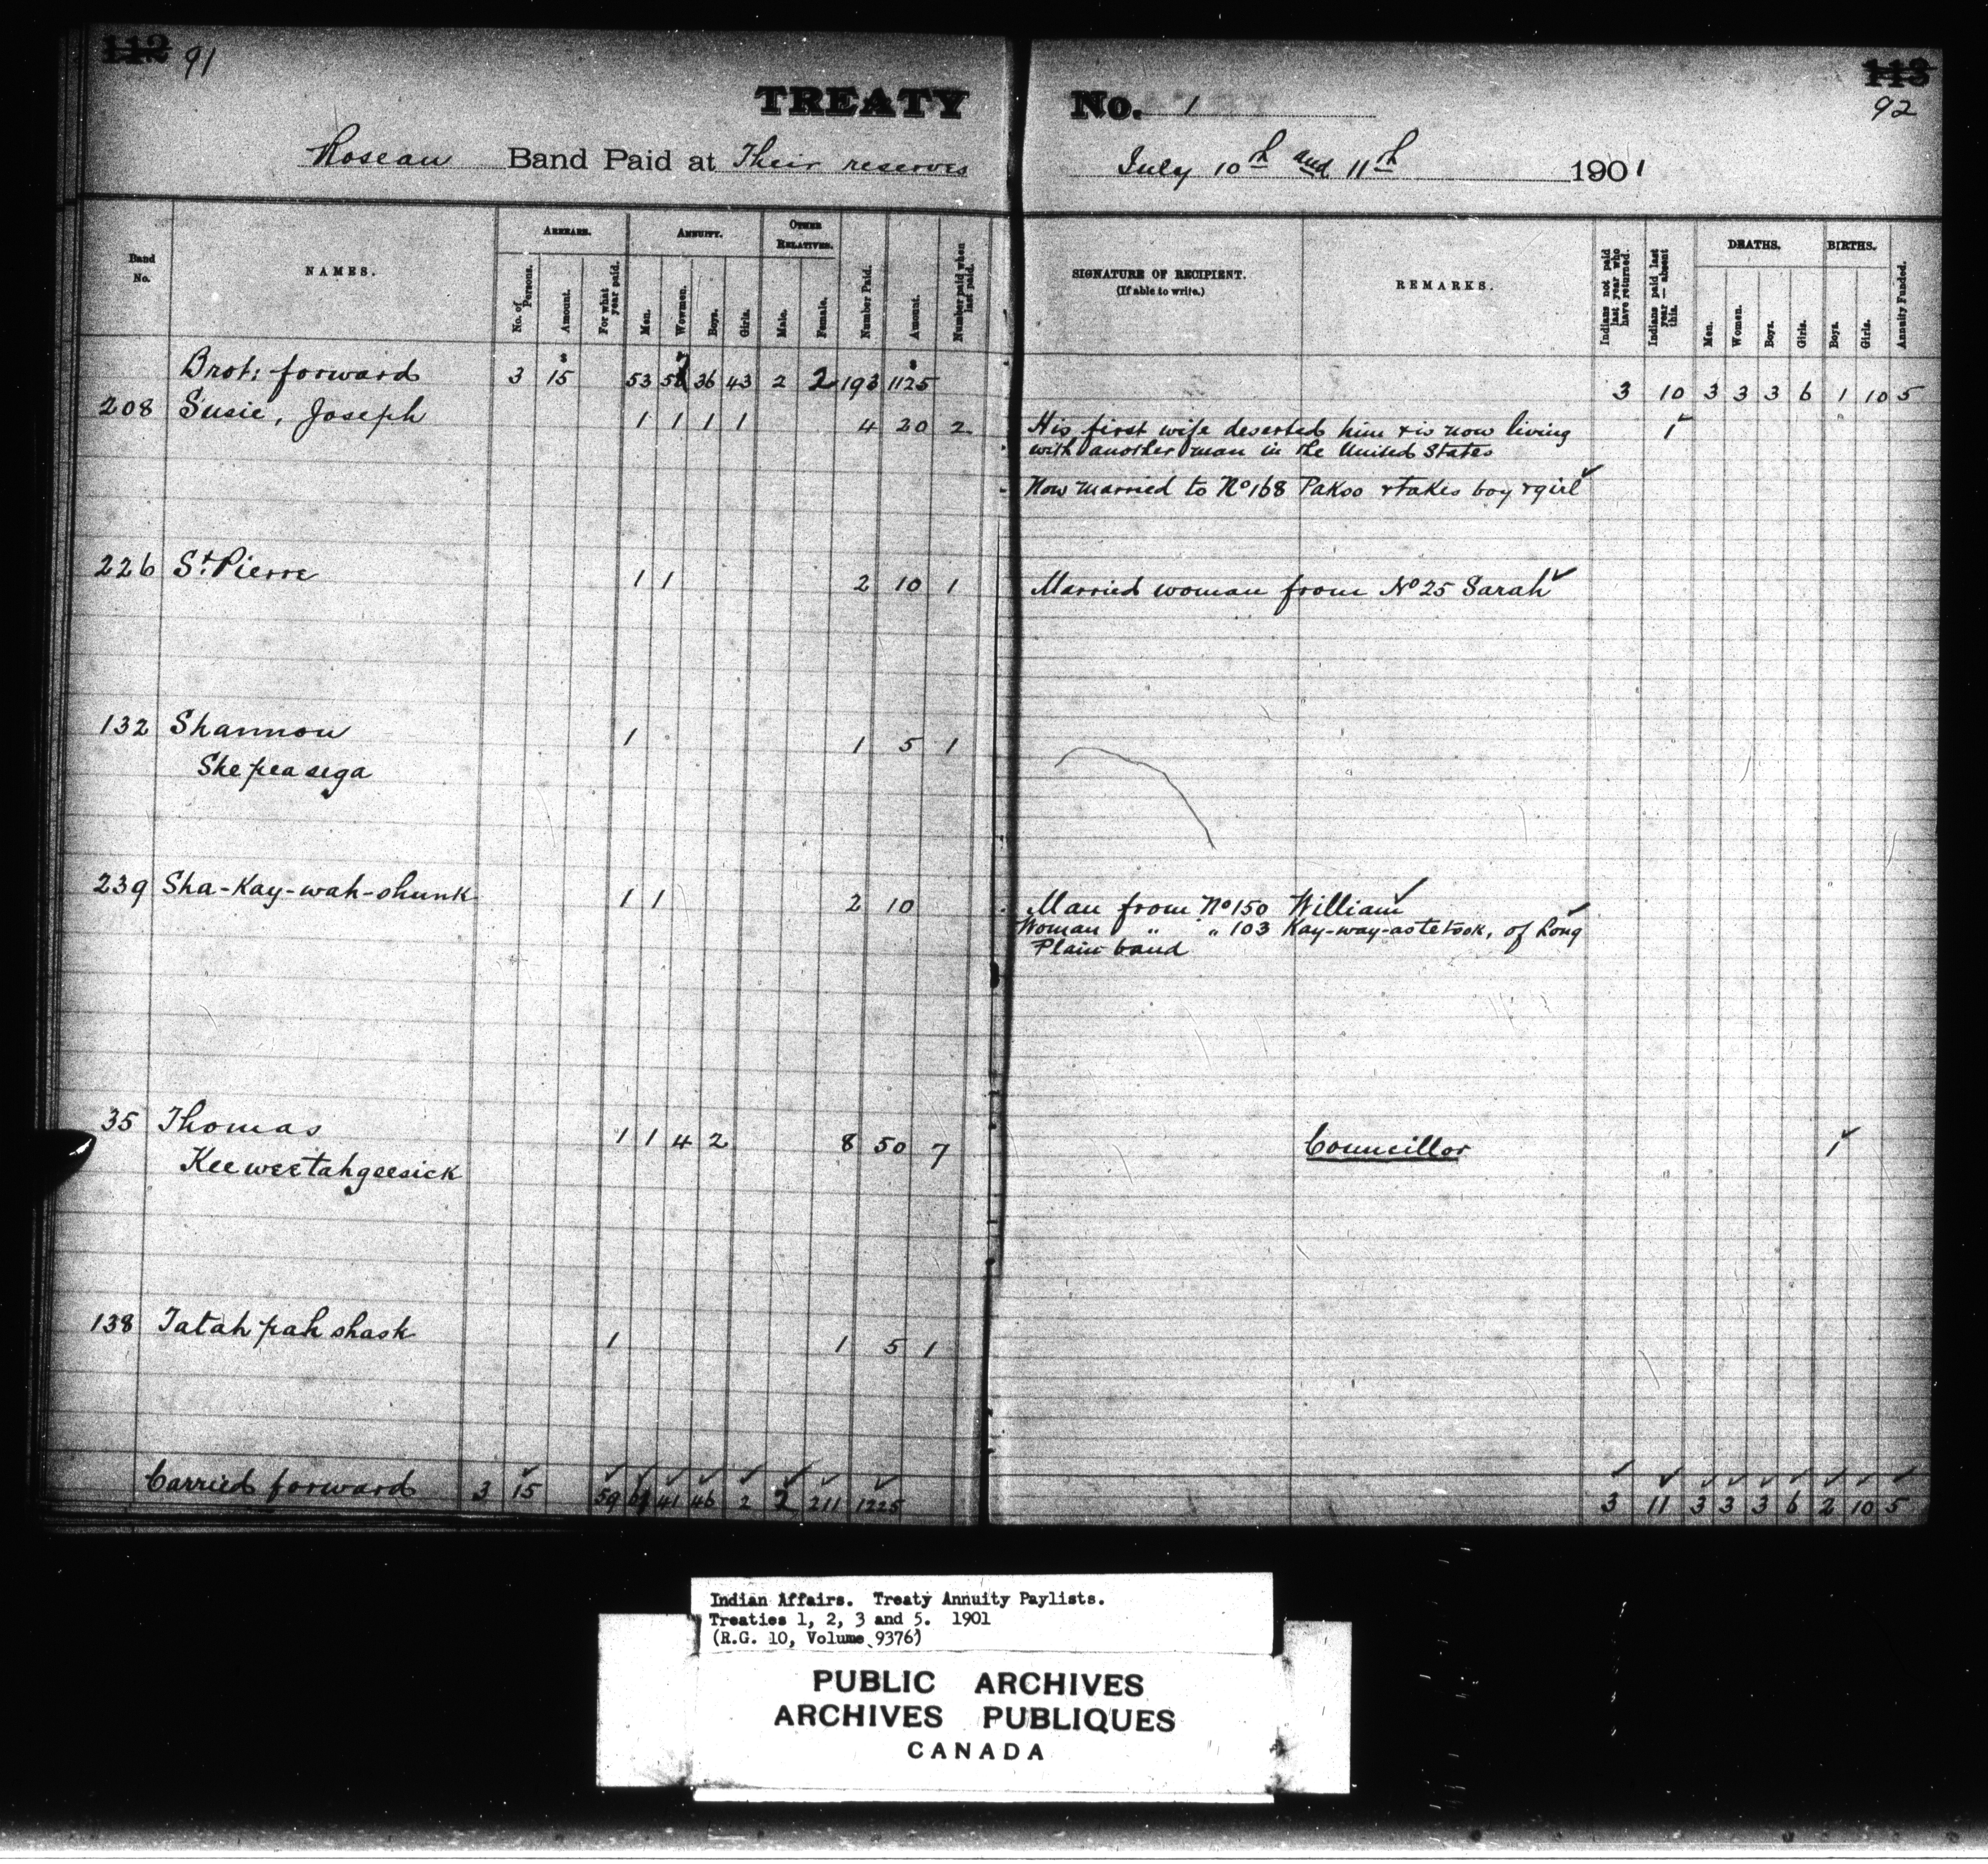 112 91
TREATY No. 1
113
92
Roseau Band Paid at Their reserves July 10th and 11th 1901
Band No.
NAMES.
ARREARS.
No. of Persons.
Amount.
For what year paid.
ANNUITY.
Men.
Women.
Boys.
Girls.
OTHER RELATIVES.
Male.
Female.
Number Paid.
Amount.
Number paid when last paid.
SIGNATURE OF RECIPIENT.
(If able to write.)
REMARKS.
Indians not paid last year who have returned.
Indians paid last year — absent this.
DEATHS.
Men.
Women.
Boys.
Girls.
BIRTHS.
Boys.
Girls.
Annuity Funded.
Brot: forward 3 15 53 36 43 2 2 193 1125 3 10 3 3 3 6 1 10 5
208 Susie, Joseph 1 1 1 1 4 20 2 His first wife deserted him & is now living 1
with another man in the United States
Now married to No 168 Pakoo & takes boy & girl
226 St. Pierre 1 1 2 10 1 Married woman from No 25 Sarah
132 Shannon 1 1 5 1
Shepeasega
239 Sha-Kay-wah-shunk 1 1 2 10 Man from No 150 William
Woman " " 103 Kay-way-astetook, of Long
Plain band
35 Thomas 1 1 4 2 8 50 7 Councillor 1
Keeweetahgeesick
138 Tatah pah shask 1 1 5 1
Carried forward 3 15 59 41 46 2 2 211 1225 3 11 3 3 3 6 2 10 5
Indian Affairs. Treaty Annuity Paylists.
Treaties 1, 2, 3 and 5. 1901
(R.G. 10, Volume 9376)
PUBLIC ARCHIVES
ARCHIVES PUBLIQUES
CANADA